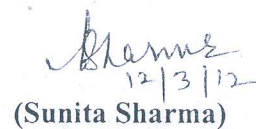 Sharma
12/3/12
(Sunita Sharma)